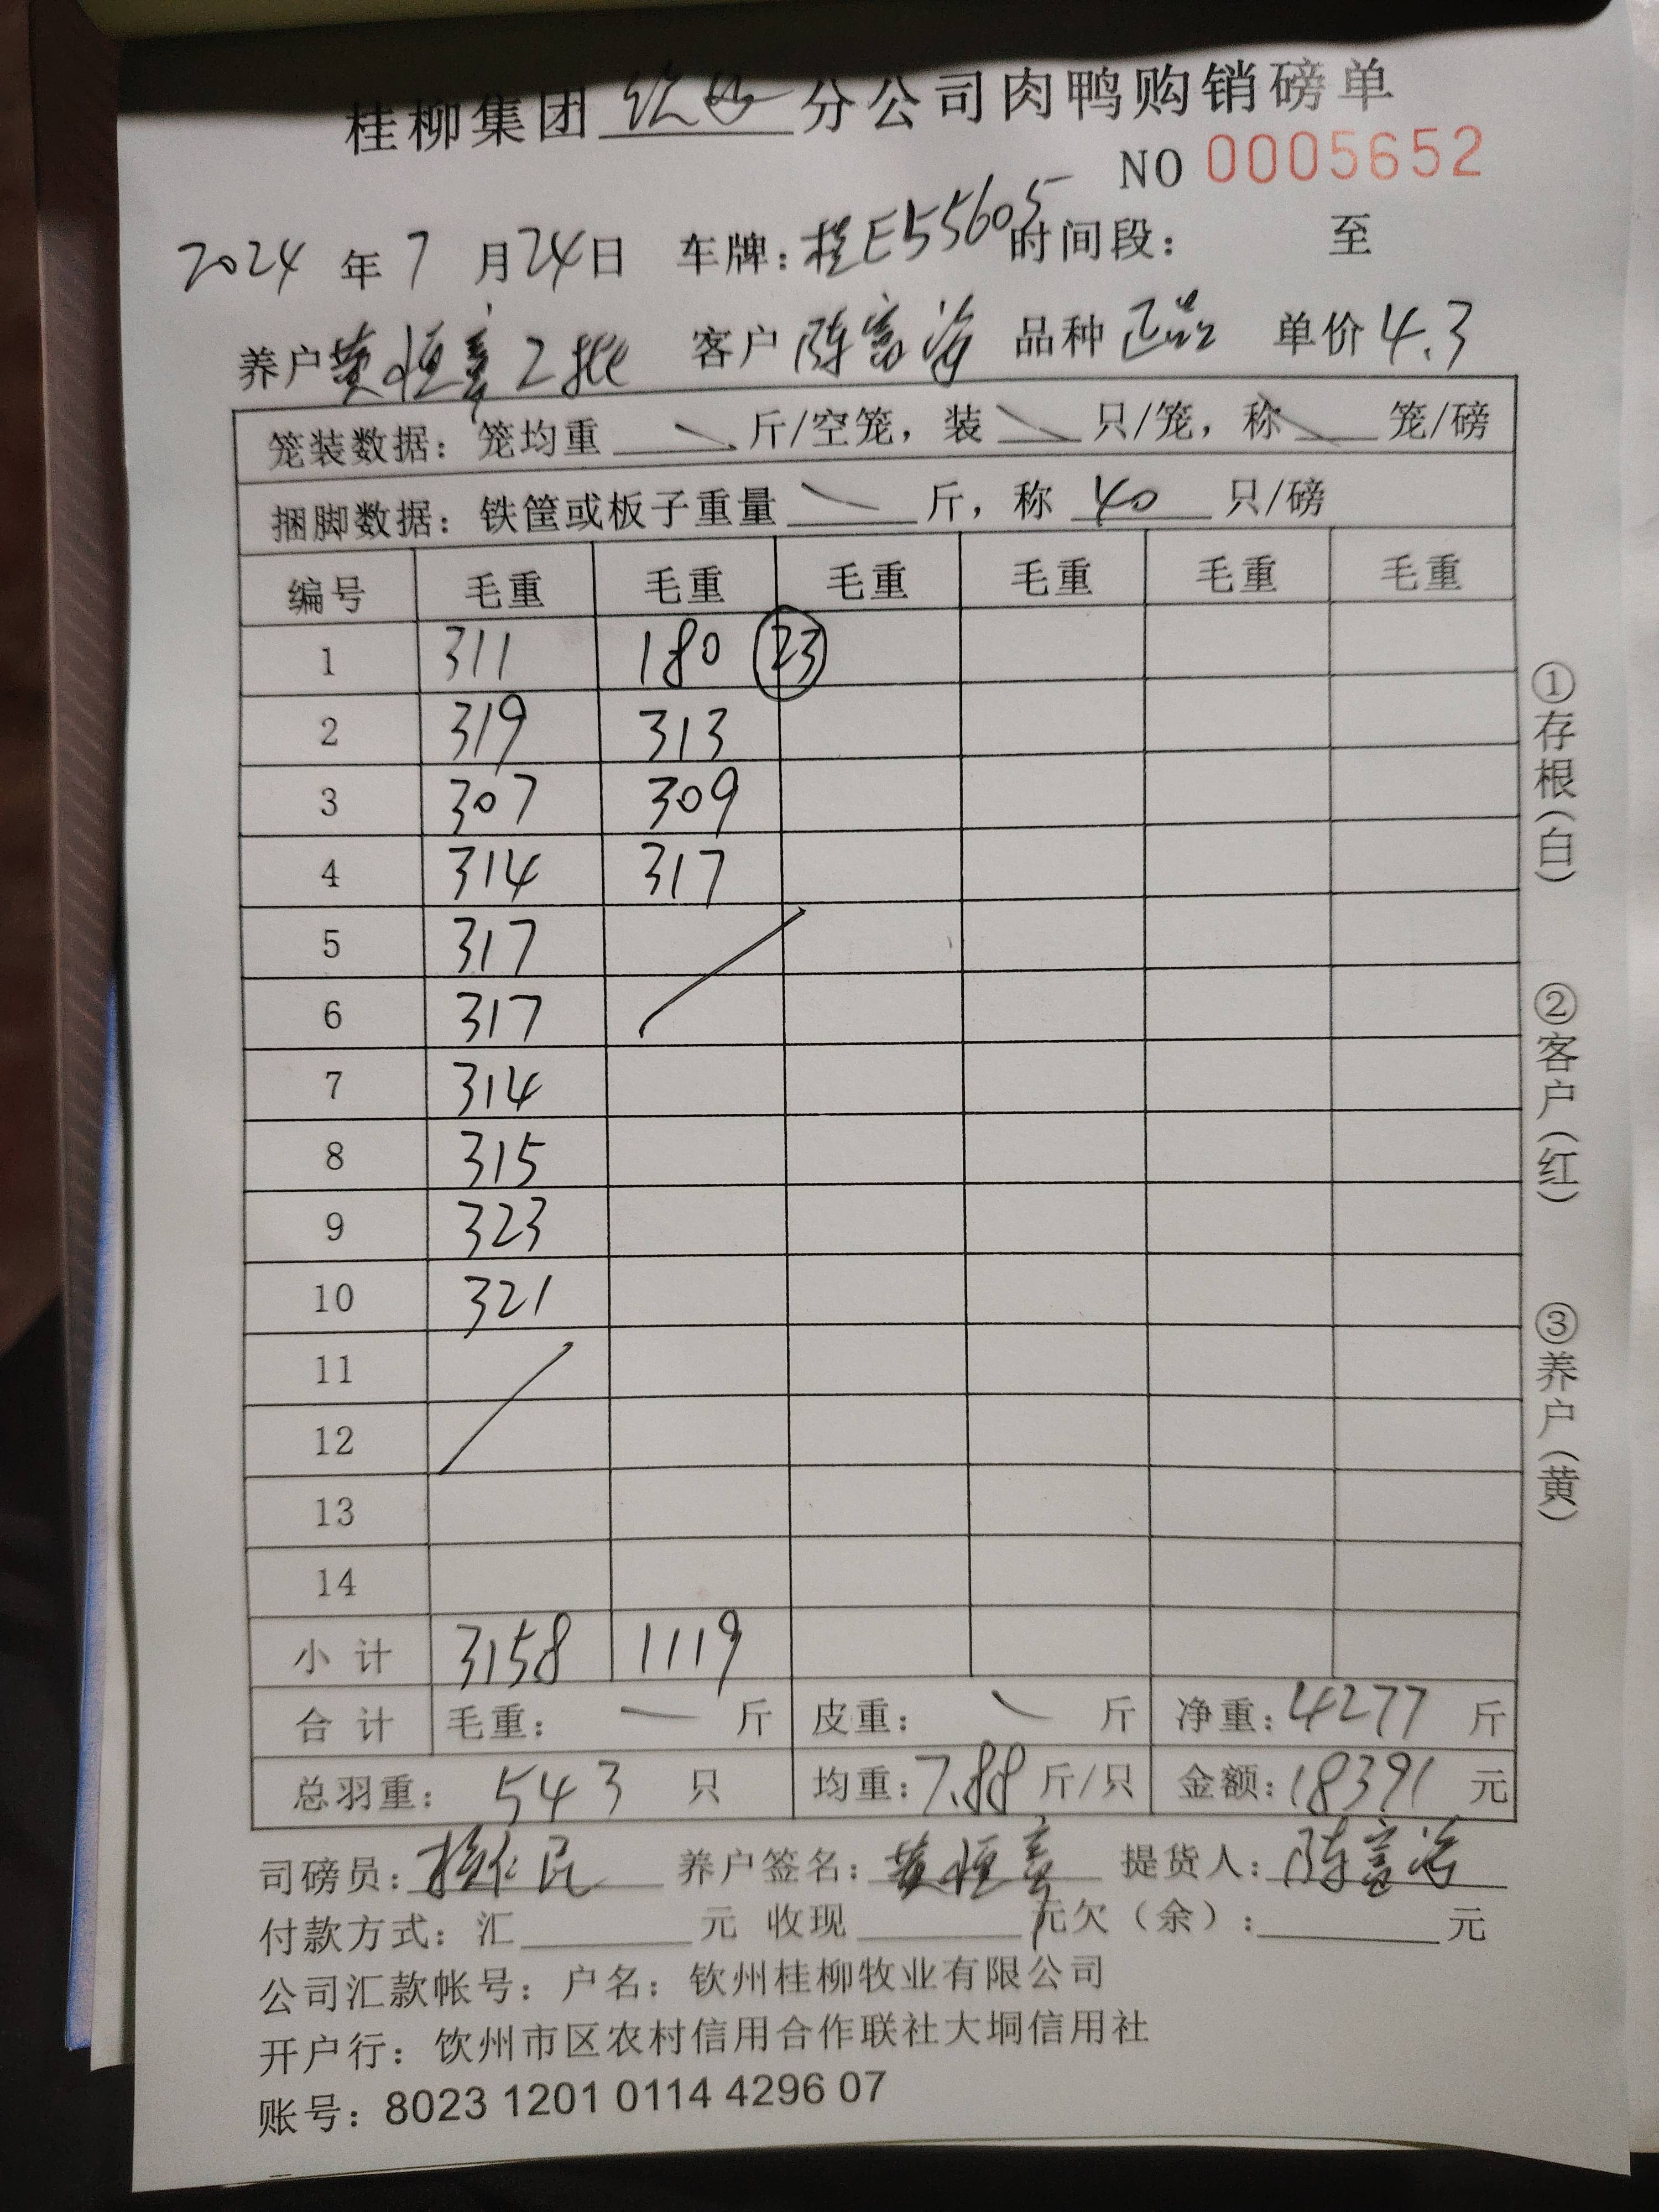 桂柳集团 钦州 分公司肉鸭购销磅单
NO 0005652
2024 年 7 月 24 日 车牌：桂E55605 时间段： 至
养户 黄恒 2批 客户 陈富 品种 正品 单价 4.3
笼装数据：笼均重 斤/空笼，装 只/笼，称 笼/磅
捆脚数据：铁筐或板子重量 斤，称 40 只/磅
编号 毛重 毛重 毛重 毛重 毛重 毛重
1 311 180 23
2 319 313
3 307 309
4 314 317
5 317
6 317
7 314
8 315
9 323
10 321
11
12
13
14
小计 3158 1119
合计 毛重： 斤 皮重： 斤 净重：4277 斤
总羽重： 543 只 均重：7.88 斤/只 金额：18391 元
司磅员： 养户签名：黄恒 提货人：陈富
付款方式：汇 元 收现 元欠（余）： 元
公司汇款帐号：户名：钦州桂柳牧业有限公司
开户行：钦州市区农村信用合作联社大垌信用社
账号：8023 1201 0114 4296 07
①存根（白）
②客户（红）
③养户（黄）